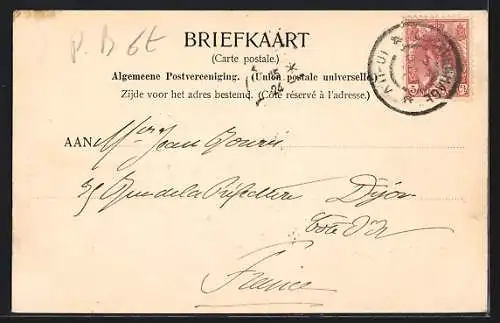 P. B 6t
BRIEFKAART
(Carte postale.)
Algemeene Postvereeniging. (Union postale universelle.)
Zijde voor het adres bestemd. (Côté réservé à l'adresse.)
AAN Jean
Rue de la Préfecture Dijon
Côte d'Or
France